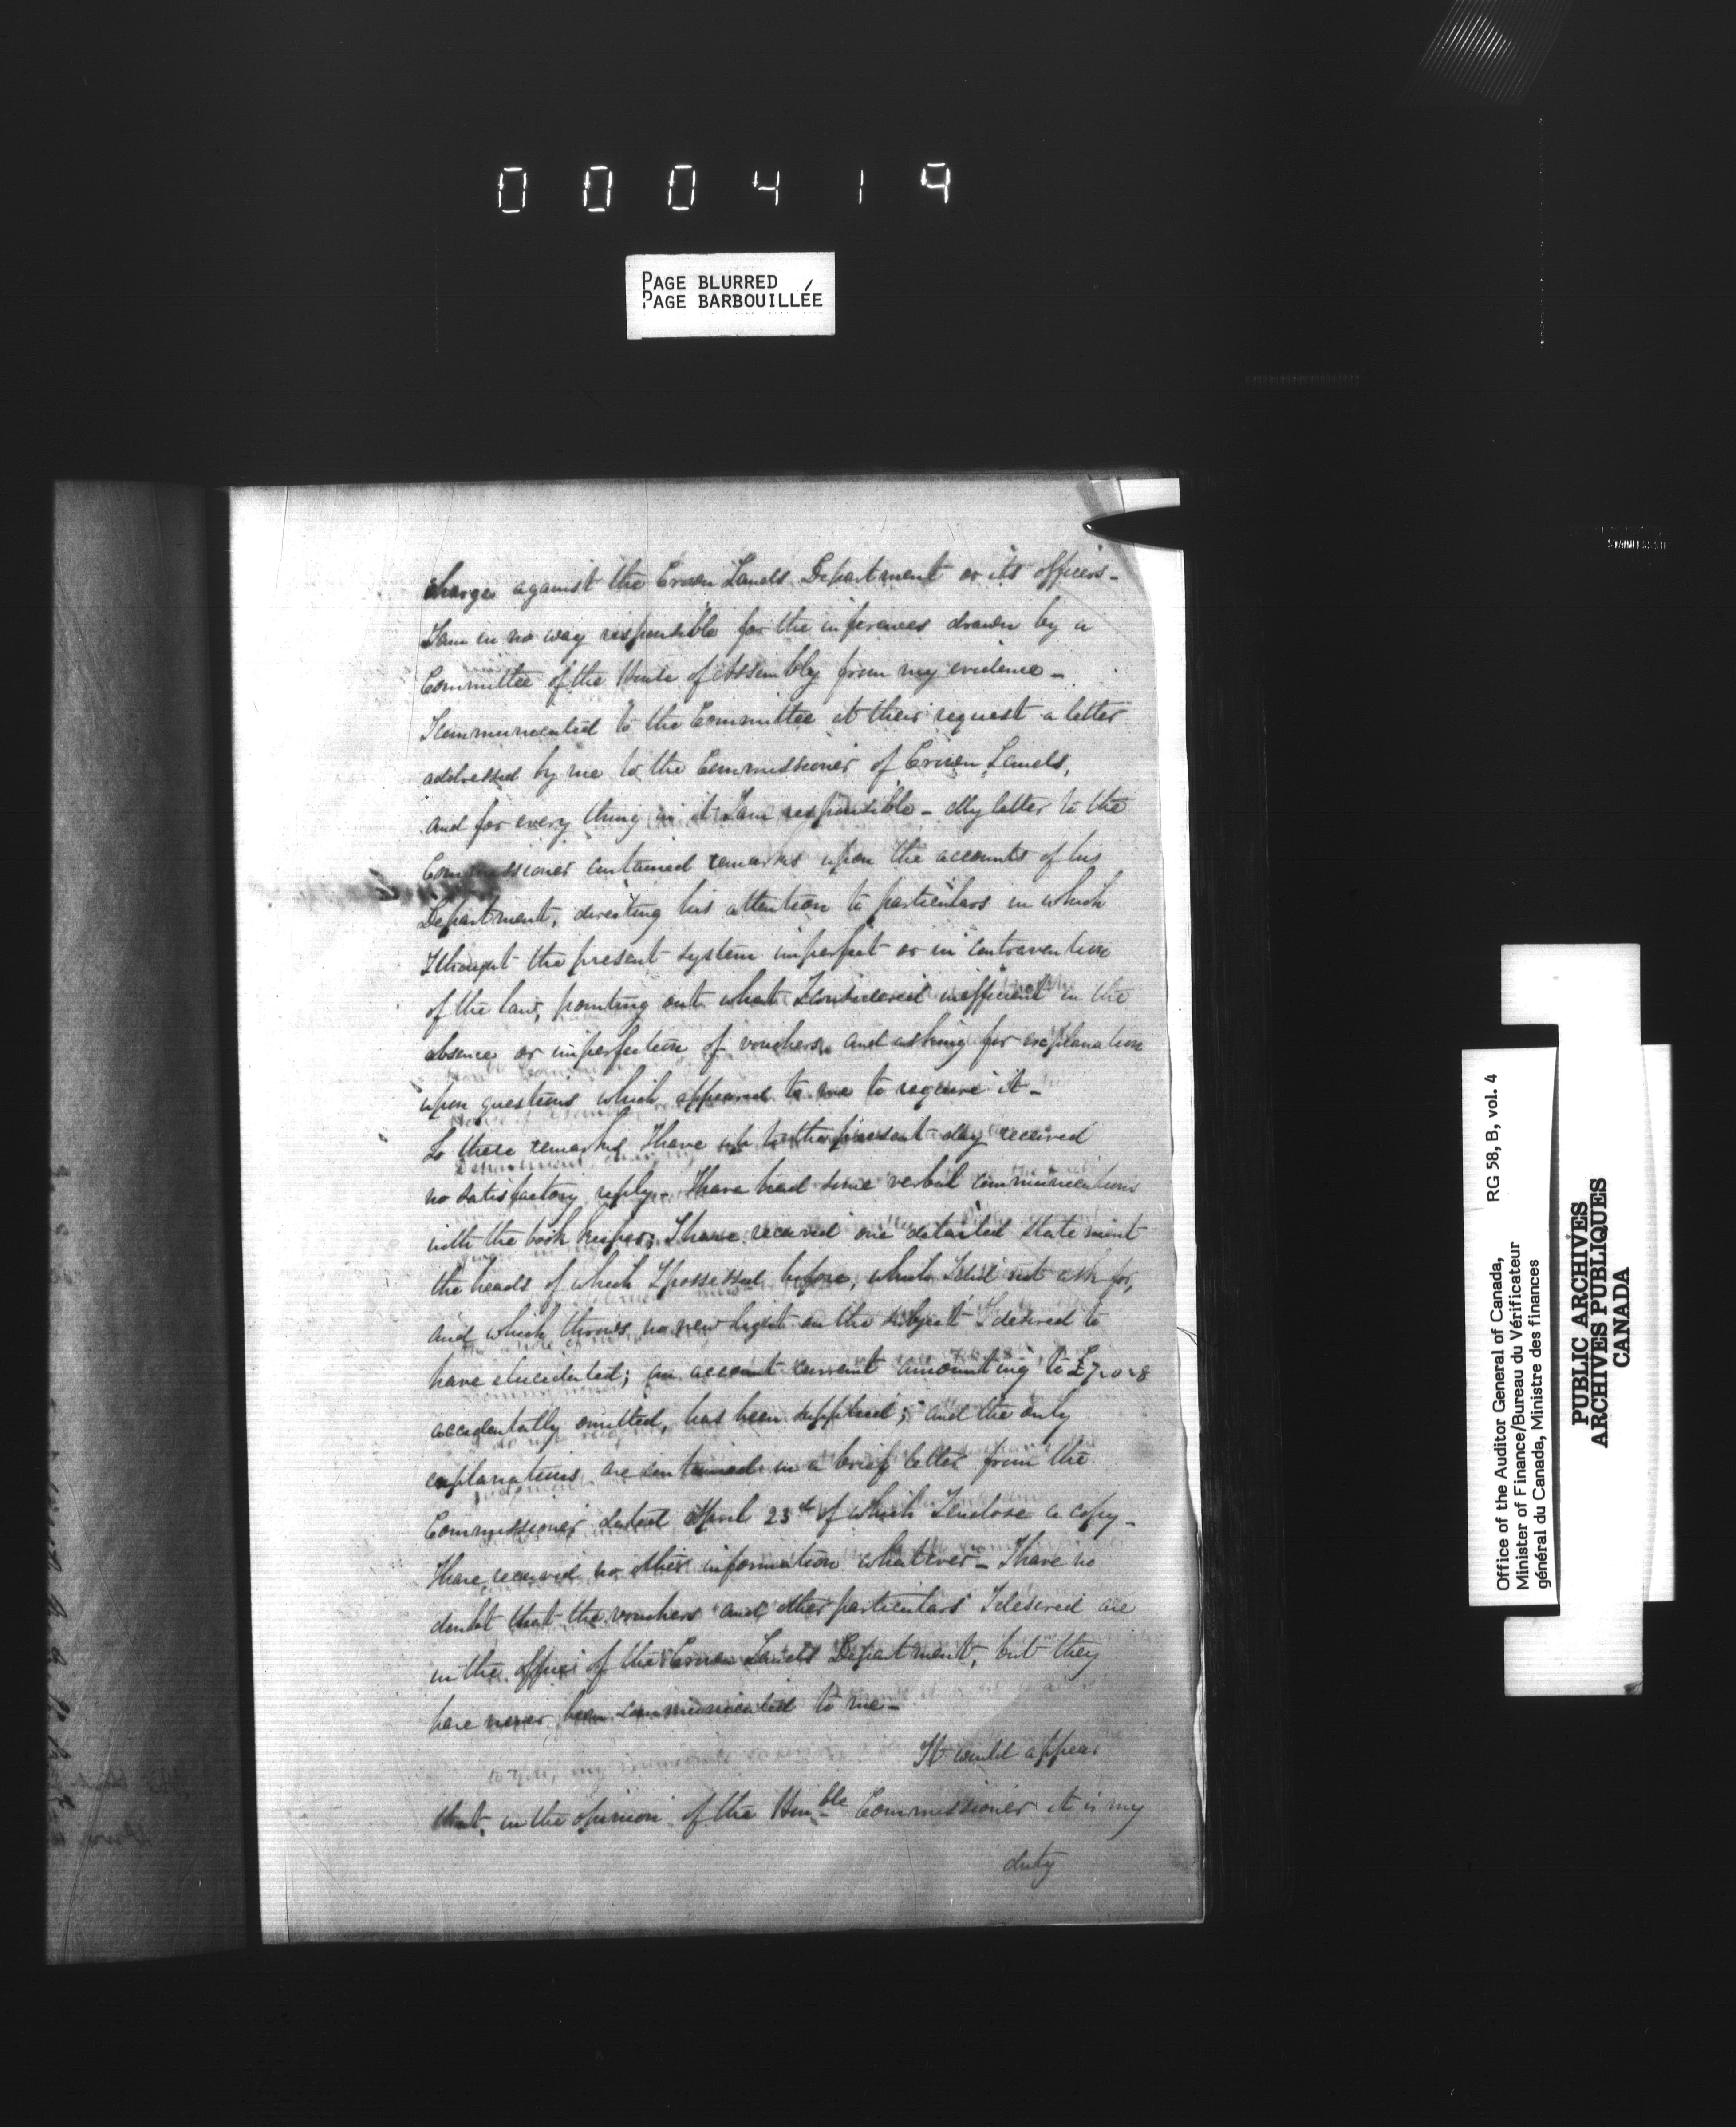 000419
PAGE BLURRED
PAGE BARBOUILLÉE
charge against the Crown Lands Department or its officers -
I am in no way responsible for the inferences drawn by a
Committee of the House of Assembly from my evidence -
I communicated to the Committee at their request a letter
addressed by me to the Commissioner of Crown Lands,
and for every thing in it I am responsible - My letter to the
Commissioner contained remarks upon the accounts of his
Department, directing his attention to particulars in which
I thought the present system imperfect or in contravention
of the law, pointing out what I considered inefficient in the
absence or imperfection of vouchers, and asking for explanation
upon questions which appeared to me to require it -
To these remarks I have up to the present day received
no satisfactory reply - I have had some verbal communications
with the book keeper; I have received one detailed statement
the heads of which I possessed before, which I did not ask for,
and which throws no new light on the subject I desired to
have elucidated; an account current amounting to £7-0-8
accidentally omitted, has been supplied; and the only
explanations are contained in a brief letter from the
Commissioner dated April 23rd of which I enclose a copy -
I have received no other information whatever - I have no
doubt that the vouchers and other particulars I desired are
in the office of the Crown Lands Department, but they
have never been communicated to me -
It would appear
that, in the opinion of the Honble Commissioner it is my
duty
Office of the Auditor General of Canada, RG 58, B, vol. 4
Minister of Finance/Bureau du Vérificateur
général du Canada, Ministre des finances
PUBLIC ARCHIVES
ARCHIVES PUBLIQUES
CANADA